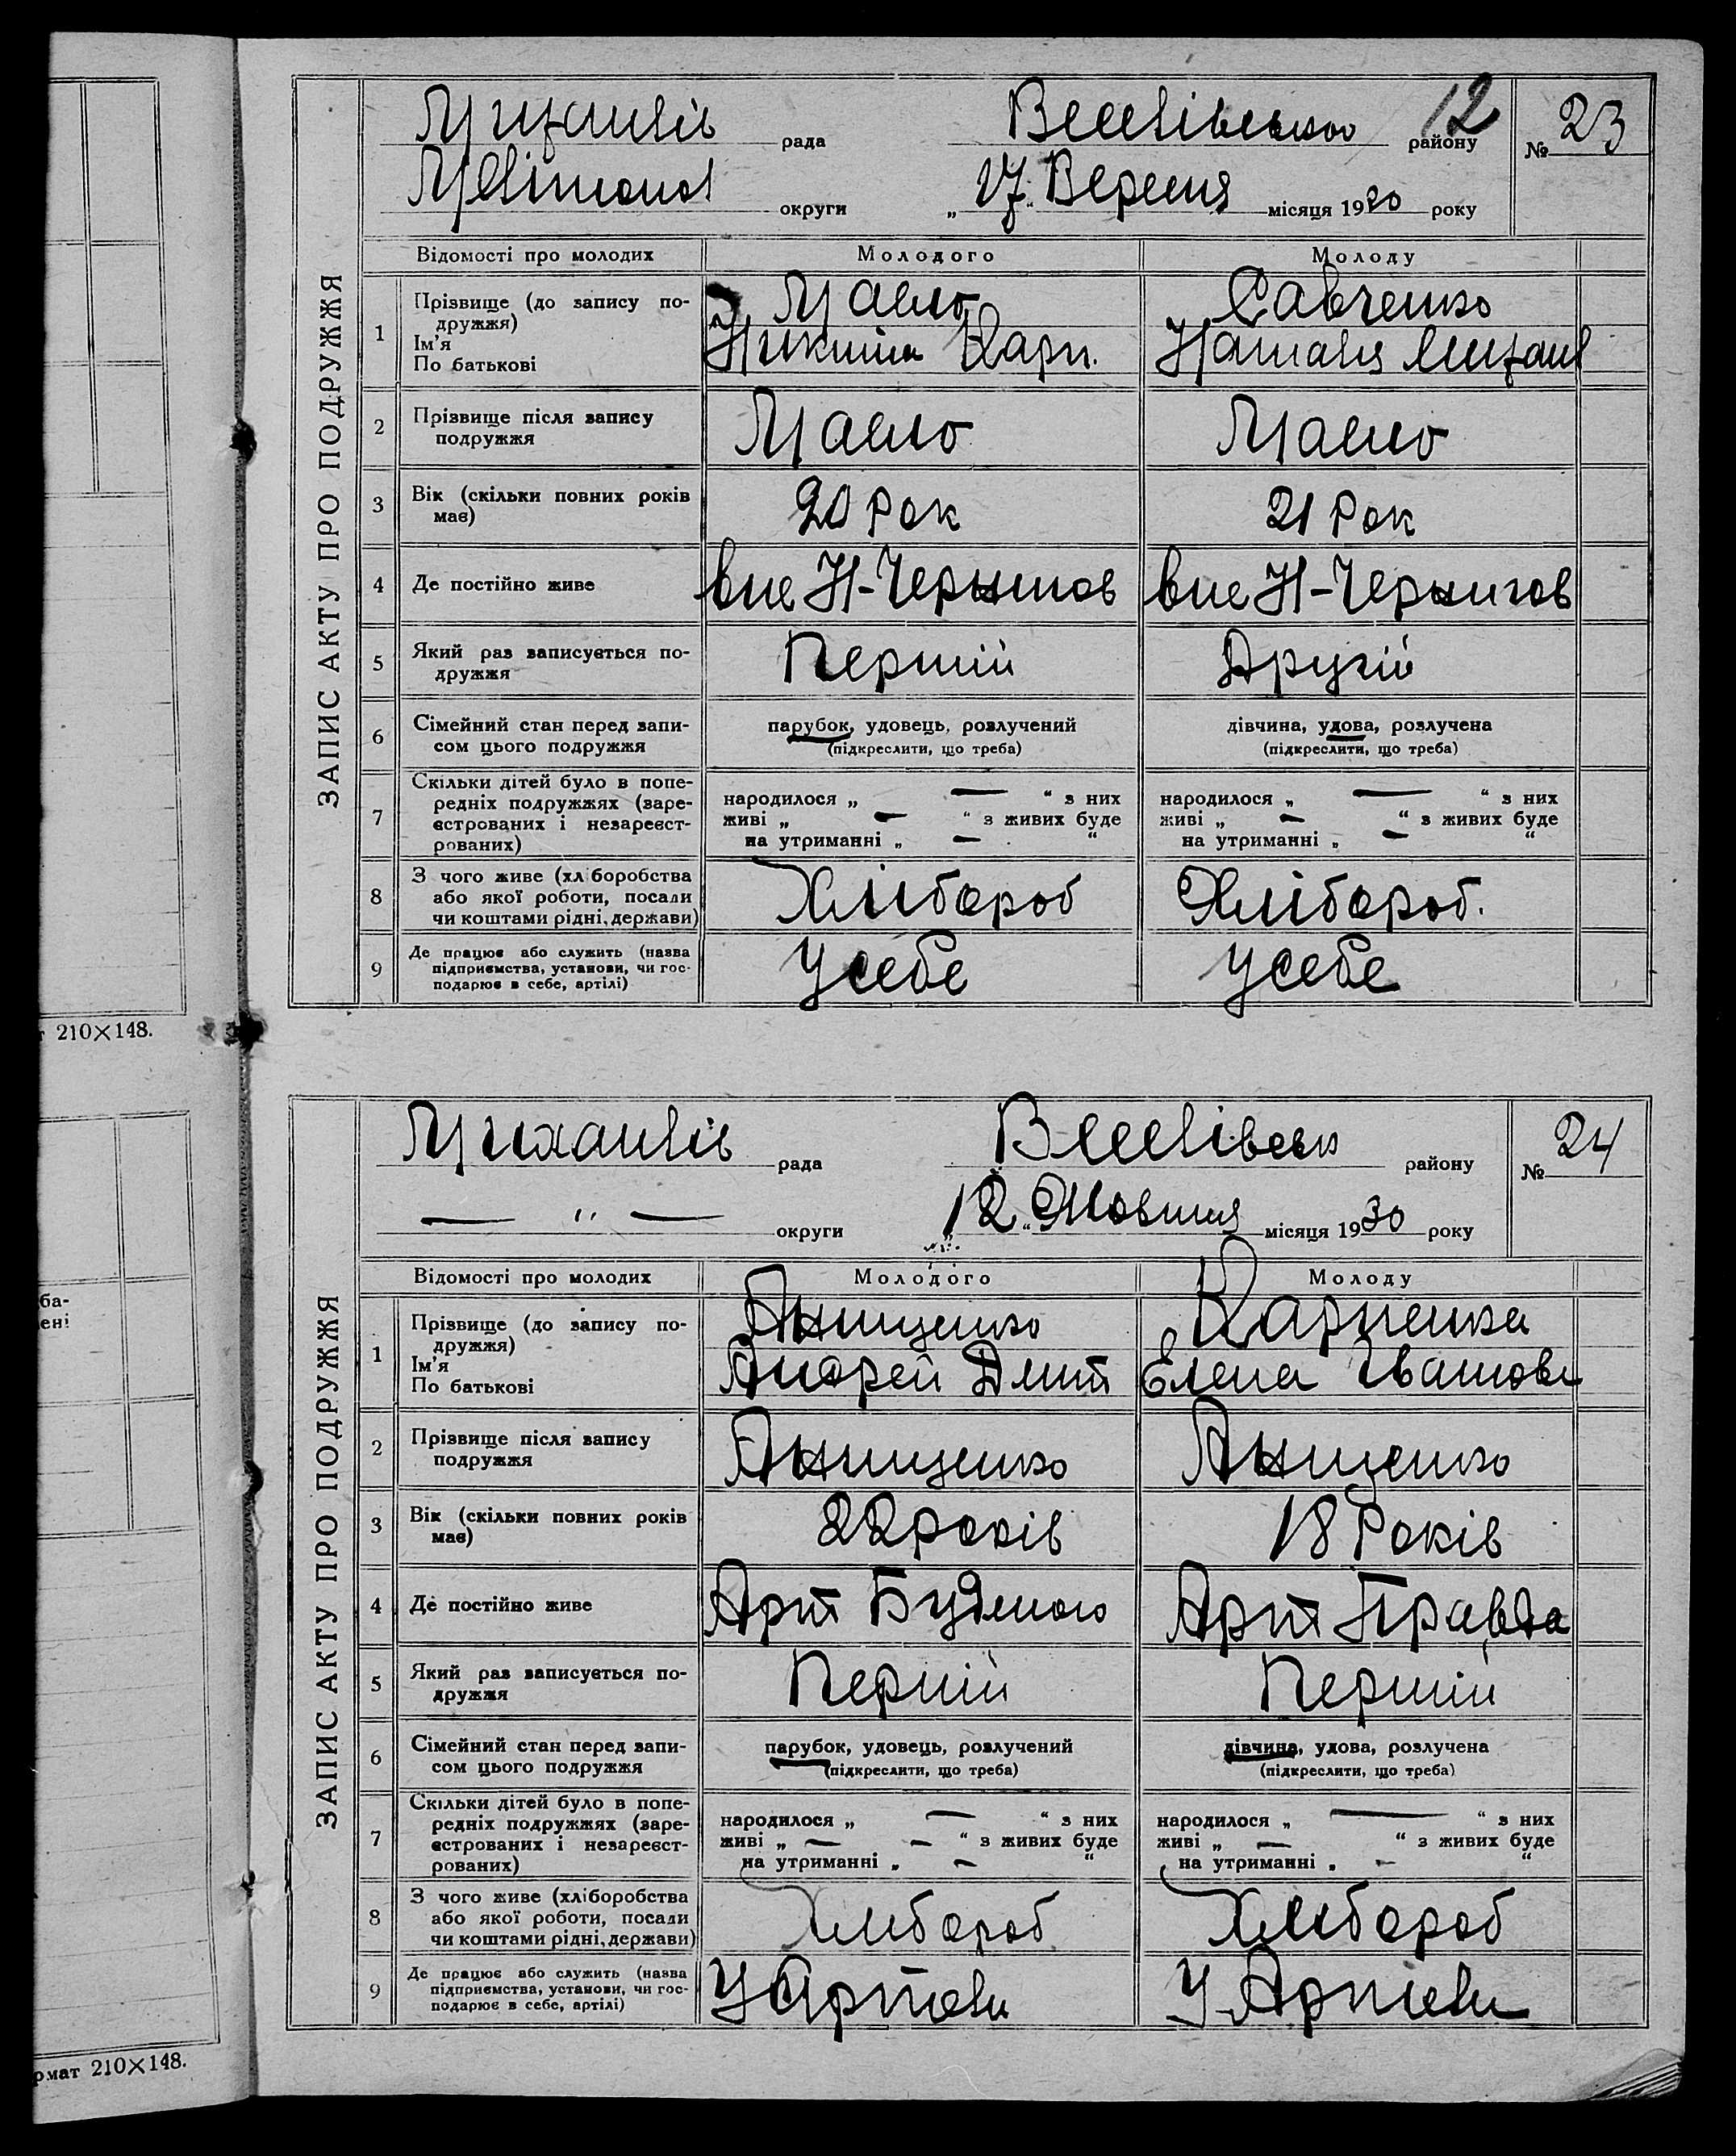 12
Михайлів рада Веселівського району № 23
Мелітопол округи „17“ Вересня місяця 1930 року
ЗАПИС АКТУ ПРО ПОДРУЖЖЯ
Відомості про молодих Молодого Молоду
1 Прізвище (до запису подружжя) Ім'я По батькові
Мало Савченко
Никита Карп. Наталія Михайл
2 Прізвище після запису подружжя Мало Мало
3 Вік (скільки повних років має) 20 Рок 21 Рок
4 Де постійно живе Н-Чернигов Н-Чернигов
5 Який раз записується подружжя Перший Другий
6 Сімейний стан перед записом цього подружжя парубок, удовець, розлучений дівчина, удова, розлучена
(підкреслити, що треба) (підкреслити, що треба)
7 Скільки дітей було в попередніх подружжях (зареєстрованих і незареєстрованих)
народилося „ — “ з них народилося „ — “ з них
живі „ — “ з живих буде живі „ — “ з живих буде
на утриманні „ — “ на утриманні „ — “
8 З чого живе (хліборобства або якої роботи, посади чи коштами рідні, держави) Хлібороб Хлібороб.
9 Де працює або служить (назва підприємства, установи, чи господарює в себе, артілі) У себе У себе
т 210×148.
Михайлів рада Веселівськ району № 24
— " — округи „12“ Жовтня місяця 1930 року
ЗАПИС АКТУ ПРО ПОДРУЖЖЯ
Відомості про молодих Молодого Молоду
ба-
ені
1 Прізвище (до запису подружжя) Ім'я По батькові
Анищенко Карпенка
Андрей Дмит Елена Ивановн
2 Прізвище після запису подружжя Анищенко Анищенко
3 Вік (скільки повних років має) 22 років 18 Років
4 Де постійно живе Арт Будьоного Арт Правда
5 Який раз записується подружжя Перший Перший
6 Сімейний стан перед записом цього подружжя парубок, удовець, розлучений дівчина, удова, розлучена
(підкреслити, що треба) (підкреслити, що треба)
7 Скільки дітей було в попередніх подружжях (зареєстрованих і незареєстрованих)
народилося „ — “ з них народилося „ — “ з них
живі „ — — “ з живих буде живі „ — “ з живих буде
на утриманні „ — “ на утриманні „ — “
8 З чого живе (хліборобства або якої роботи, посади чи коштами рідні, держави) Хлібороб Хлібороб
9 Де працює або служить (назва підприємства, установи, чи господарює в себе, артілі) У Артели У Артели
рмат 210×148.